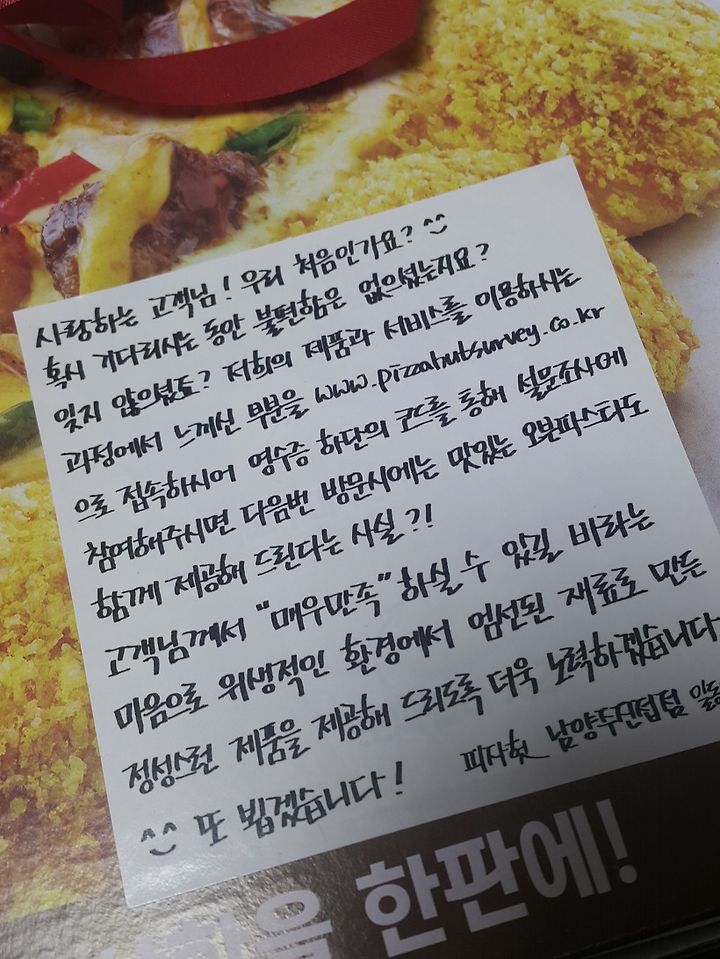 사랑하는 고객님! 우리 처음인가요? ^^
혹시 기다리시는 동안 불편함은 없으셨는지요?
잊지 않으셨죠? 저희의 제품과 서비스를 이용하시는
과정에서 느끼신 부분을 www.pizzahutsurvey.co.kr
으로 접속하시어 영수증 하단의 코드를 통해 설문조사에
참여해주시면 다음번 방문시에는 맛있는 오븐파스타도
함께 제공해 드린다는 사실?!
고객님께서 "매우만족" 하실 수 있길 바라는
마음으로 위생적인 환경에서 엄선된 재료로 만든
정성스런 제품을 제공해 드리도록 더욱 노력하겠습니다
^^ 또 뵙겠습니다! 피자헛 남양주진접점 일동
한판에!